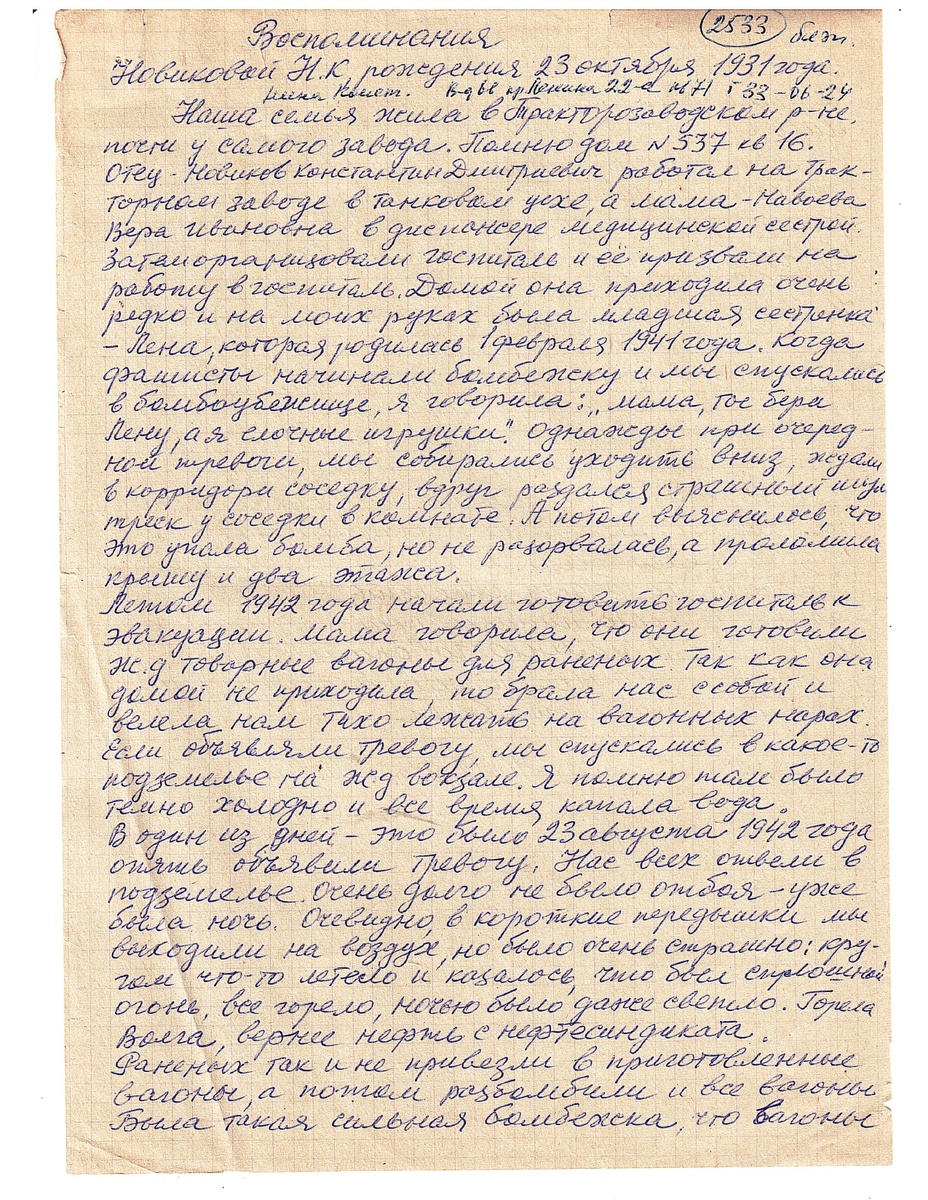 2533
блэк.
Воспоминания
Новиковой Н.К, рождения 23 октября 1931 года.
Конст. В-д 66 пр. Ленина 22-а т 33-06-24
Наша семья жила в Тракторозаводском р-не,
почти у самого завода. Помню дом № 537 кв 16.
Отец - Новиков Константин Дмитриевич работал на Трак-
торном заводе в танковом цехе, а мама - Наваева
Вера Ивановна в диспансере медицинской сестрой.
Затем организовали госпиталь и её призвали на
работу в госпиталь. Домой она приходила очень
редко и на моих руках была младшая сестренка
- Лена, которая родилась 1 февраля 1941 года. Когда
фашисты начинали бомбежку и мы спускались
в бомбоубежище, я говорила: „мама, ты бери
Лену, а я елочные игрушки". Однажды при очеред-
ной тревоги, мы собирались уходить вниз, ждали
в корридори соседку, вдруг раздался страшный шум
треск у соседки в комнате. А потом выяснилось, что
это упала бомба, но не разорвалась, а проломила
крышу и два этажа.
Летом 1942 года начали готовить госпиталь к
эвакуации. Мама говорила, что они готовили
ж.д товарные вагоны для раненых. Так как она
домой не приходила, то брала нас с собой и
велела нам тихо лежать на вагонных нарах.
Если объявляли тревогу, мы спускались в какое-то
подземелье на ж.д вокзале. Я помню там было
темно холодно и все время капала вода.
В один из дней - это было 23 августа 1942 года
опять объявили тревогу. Нас всех отвели в
подземелье. Очень долго не было отбоя - уже
была ночь. Очевидно, в короткие передышки мы
выходили на воздух, но было очень страшно: кру-
гом что-то летело и казалось, что был сплошной
огонь, все горело, ночью было даже светло. Горела
Волга, вернее нефть с нефтесиндиката.
Раненых так и не привезли в приготовленные
вагоны, а потом разбомбили и все вагоны
Была такая сильная бомбежка, что вагоны